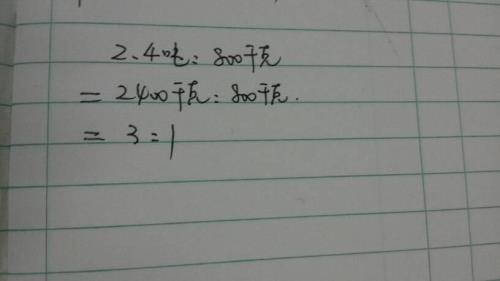 2.4吨：800千克
= 2400千克：800千克.
= 3：1